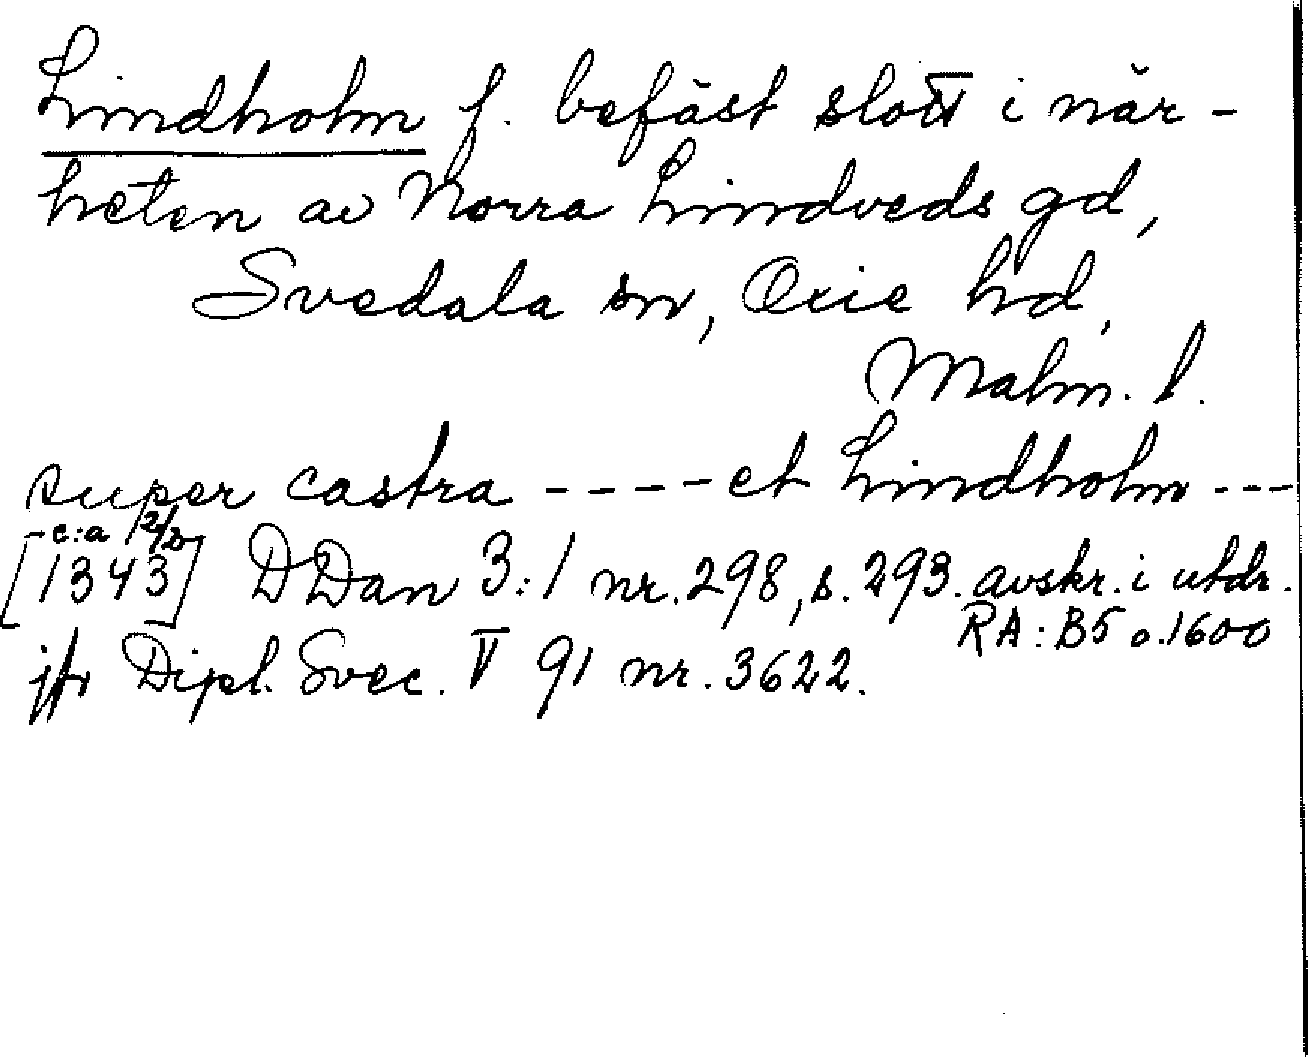 Lindholm f. befäst slott i när-
heten av Norra Lindveds gd,
Svedala sn, Oxie hd,
Malm. l.
super castra ---- et Lindholm ---
- c:a 12/2
[1343] DDan 3:1 nr. 298, s. 293. avskr. i utdr.
RA: B5 o. 1600
jfr Dipl. Svec. V 91 nr. 3622.